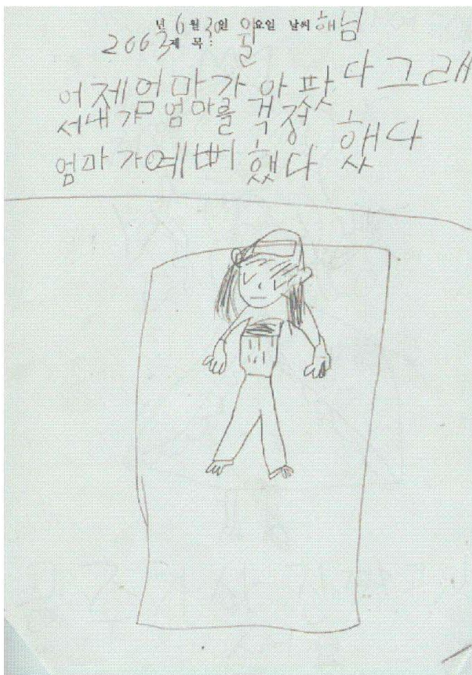 2003년 6월 30일 월요일 날씨 해님
제 목 :
어제엄마가 아팟다그래
서내가 엄마를 걱정 했다
엄마가예뻐했다